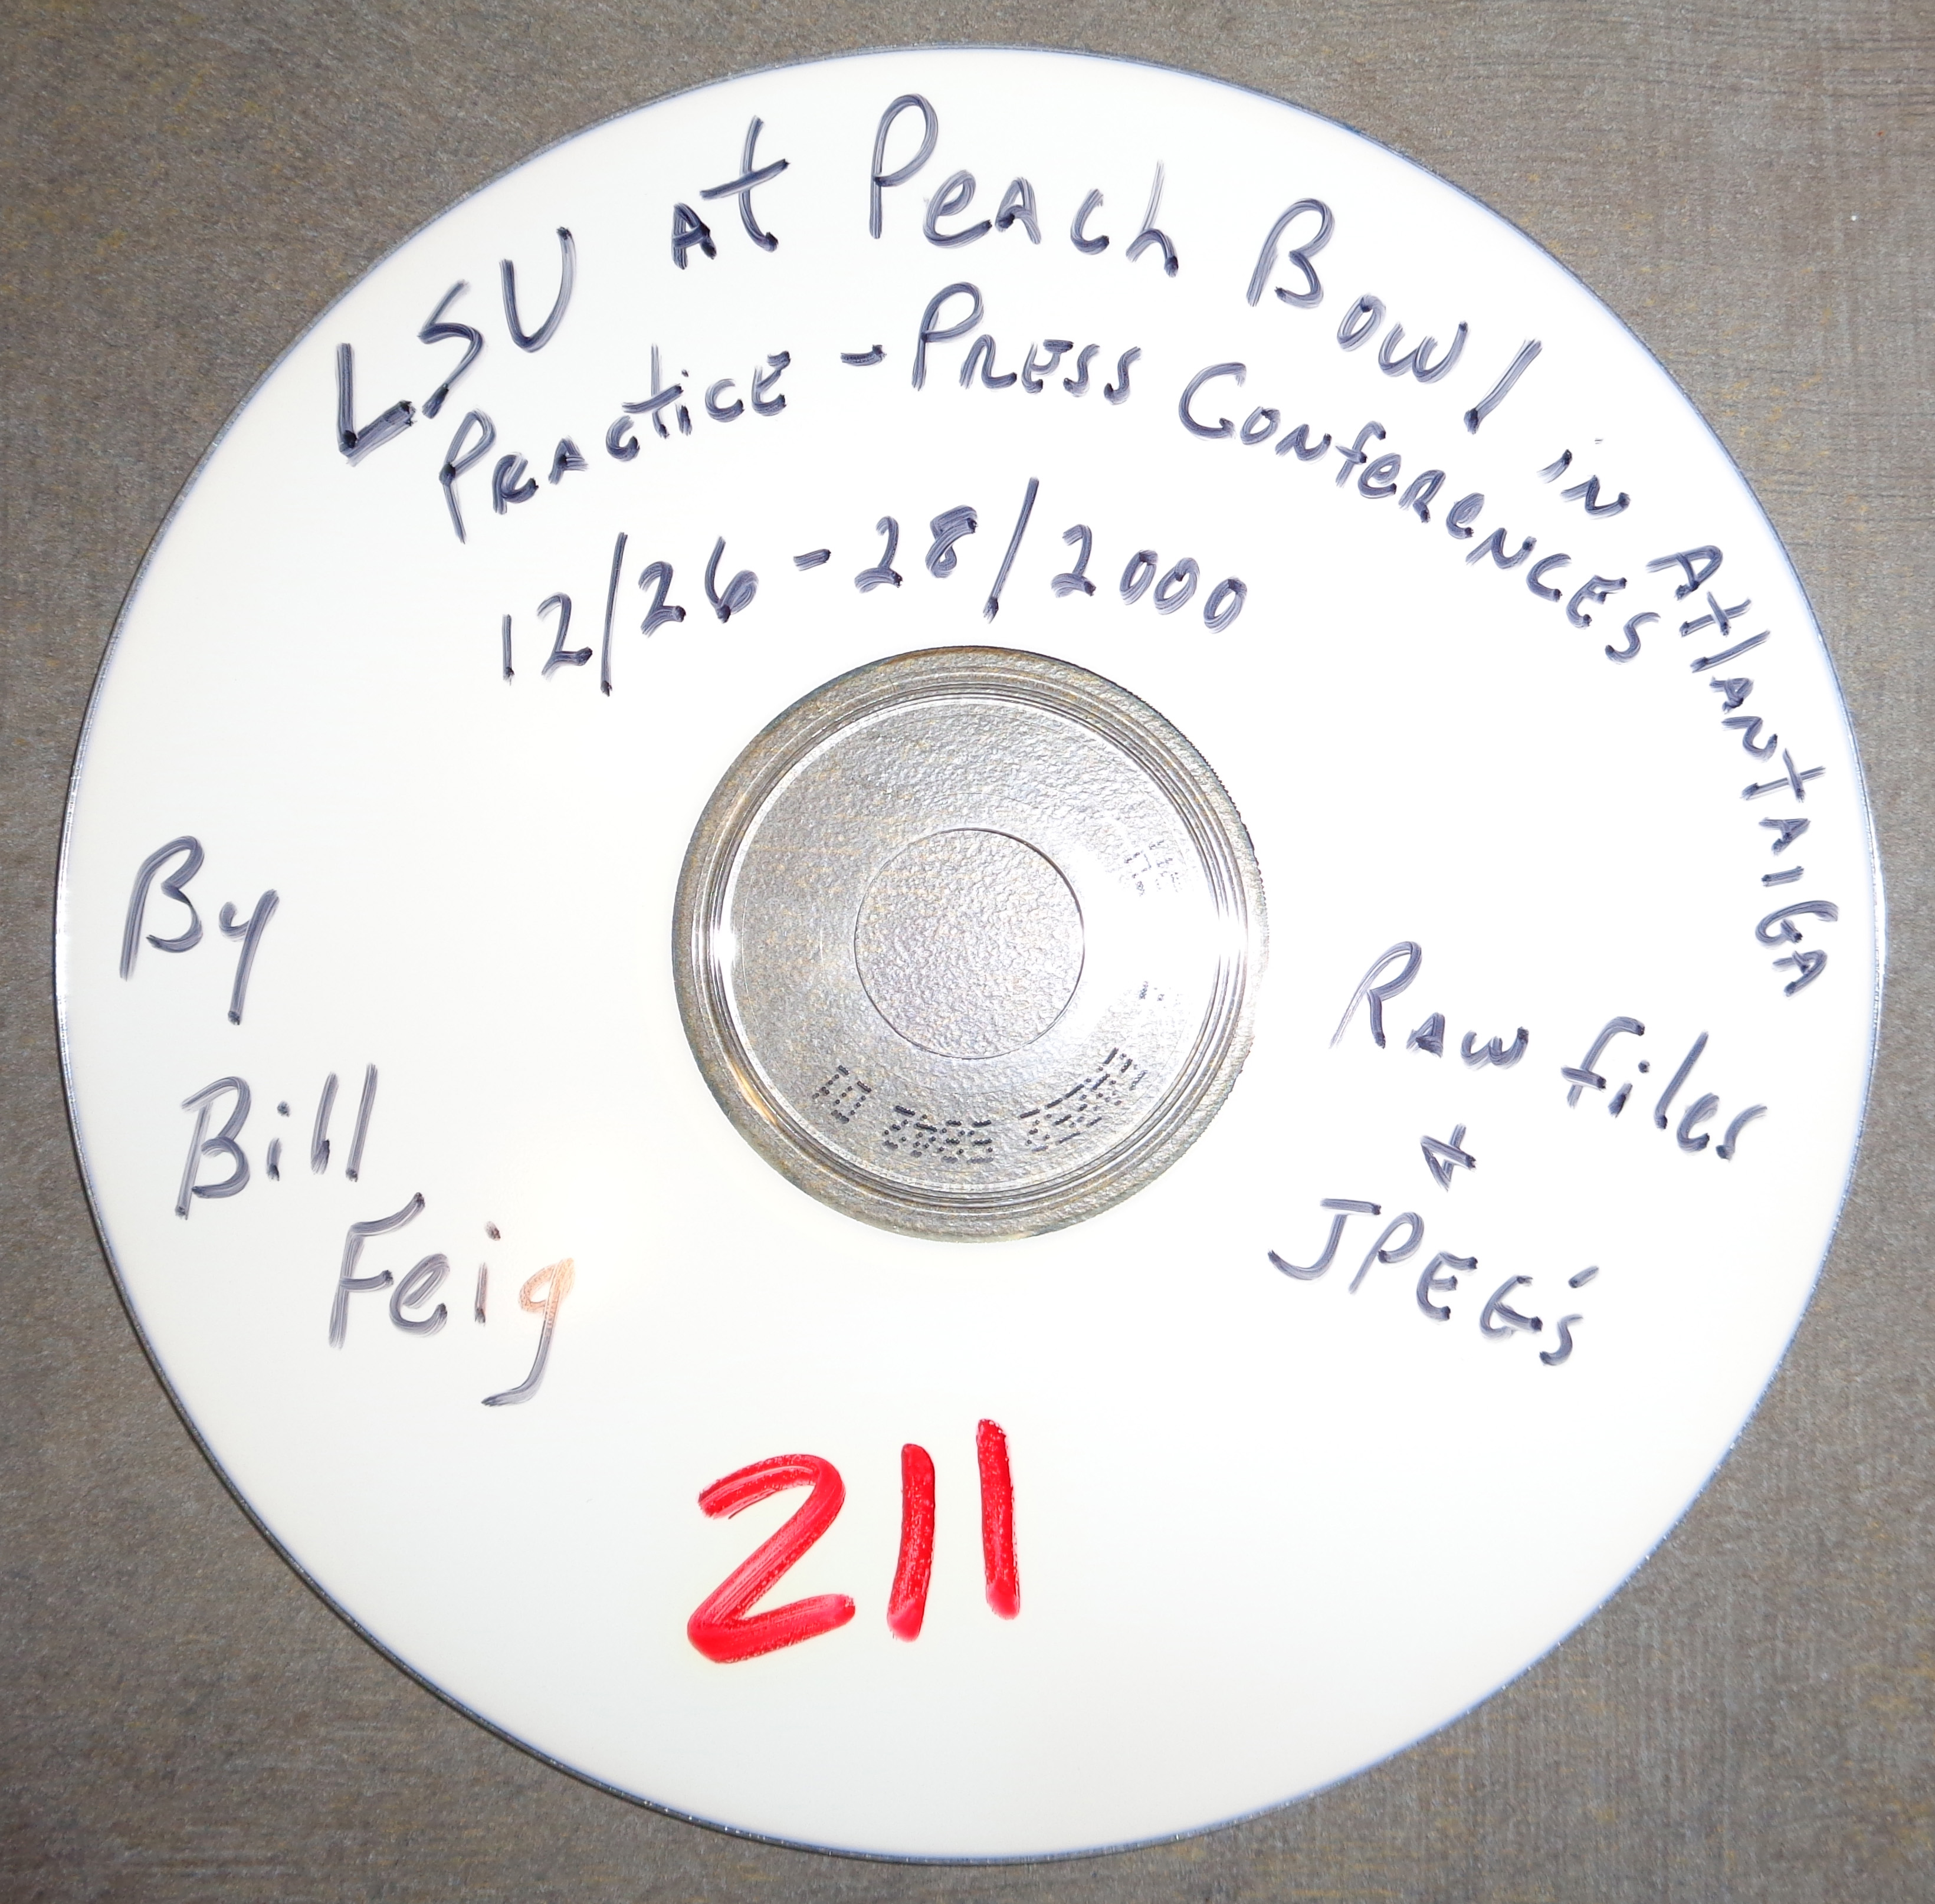 LSU at Peach Bowl in Atlanta, GA
Practice - Press Conferences
12/26-28/2000
By
Bill
Feig
Raw files
+
JPEG's
211